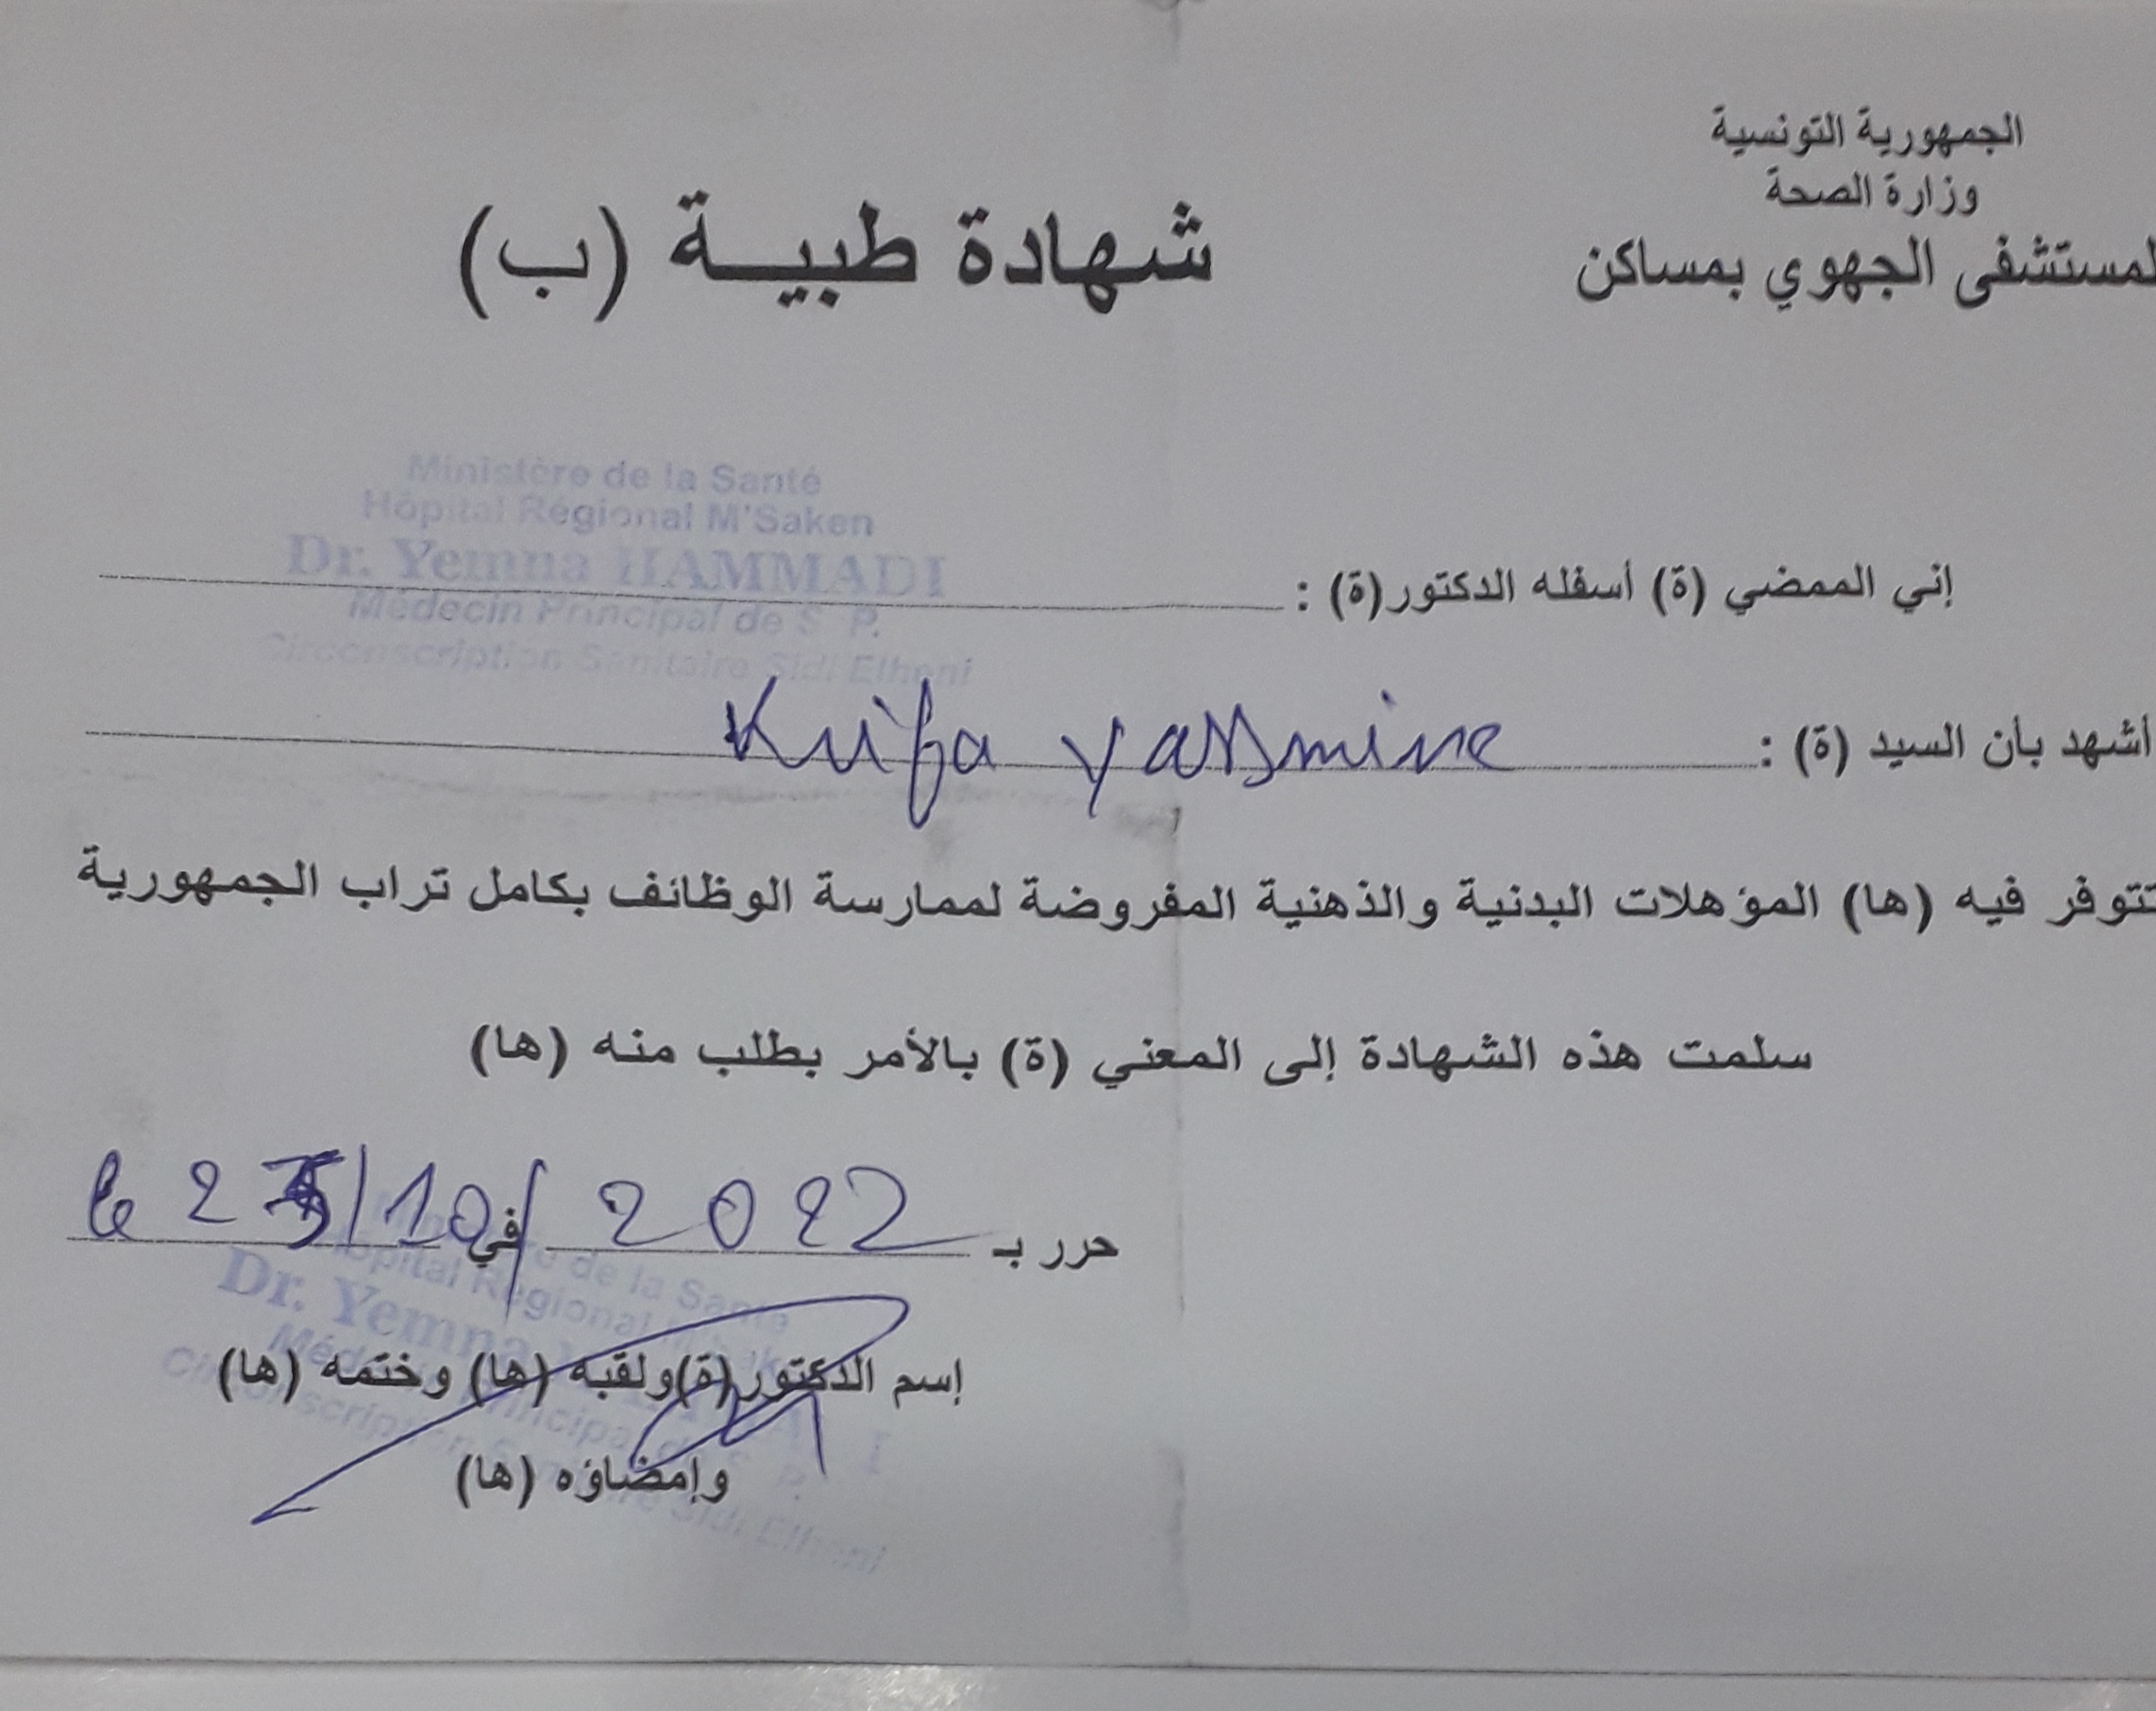 الجمهورية التونسية
وزارة الصحة
لمستشفى الجهوي بمساكن
شهادة طبيــة (ب)
Ministère de la Santé
Hôpital Régional M'Saken
Dr. Yemna HAMMADI
Médecin Principal de S. P.
Circonscription Sanitaire Sidi Elheni
إني الممضي (ة) أسفله الدكتور(ة) :
أشهد بأن السيد (ة) : Krifa yassmine
تتوفر فيه (ها) المؤهلات البدنية والذهنية المفروضة لممارسة الوظائف بكامل تراب الجمهورية
سلمت هذه الشهادة إلى المعني (ة) بالأمر بطلب منه (ها)
حرر بـ في le /10/2022
Ministère de la Santé
Hôpital Régional
Dr. Yemna
Médecin Principal de S. P.
Circonscription Sanitaire Sidi Elheni
إسم الدكتور(ة)ولقبه (ها) وختمه (ها)
وإمضاؤه (ها)